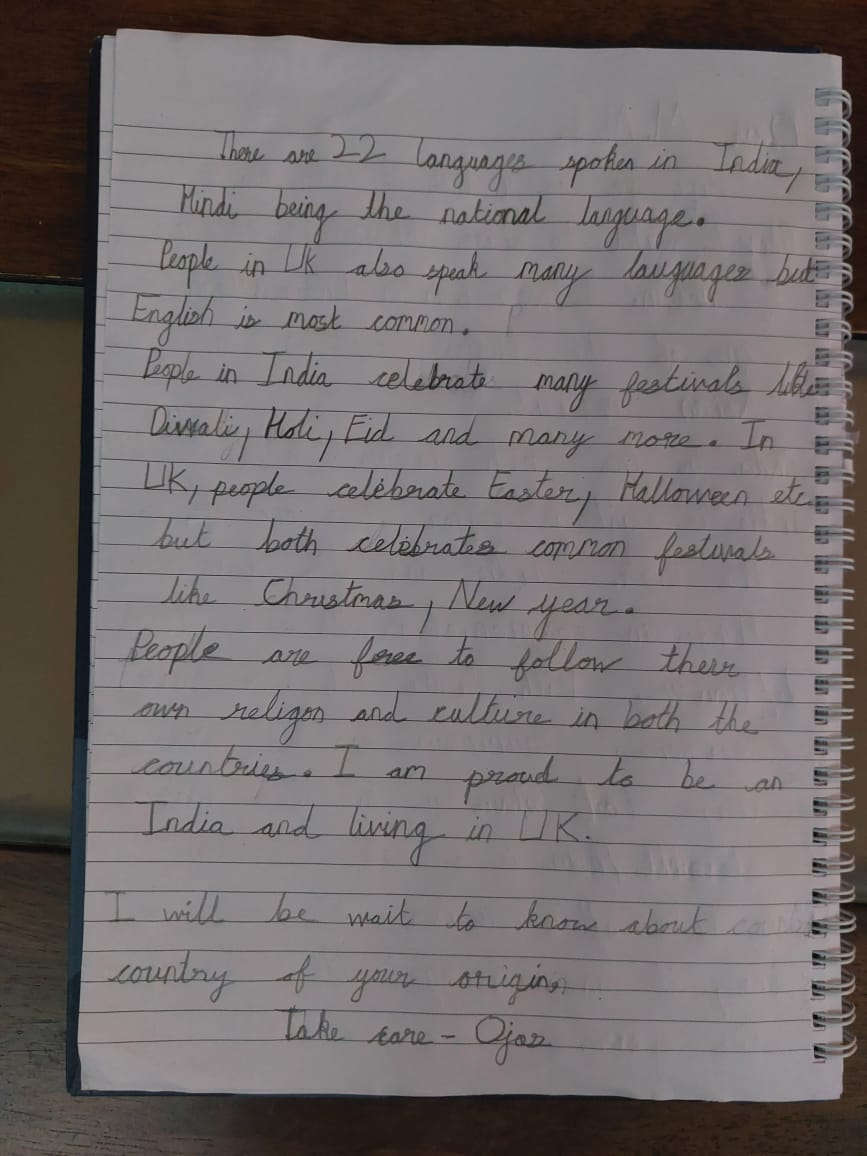 There are 22 languages spoken in India,
Hindi being the national language.
People in UK also speak many languages but
English is most common.
People in India celebrate many festivals like
Diwali, Holi, Eid and many more. In
UK, people celebrate Easter, Halloween etc
but both celebrates common festivals
like Christmas, New year.
People are free to follow their
own religon and culture in both the
countries. I am proud to be an
India and living in UK.
I will be wait to know about
country of your origin.
Take care - Ojas